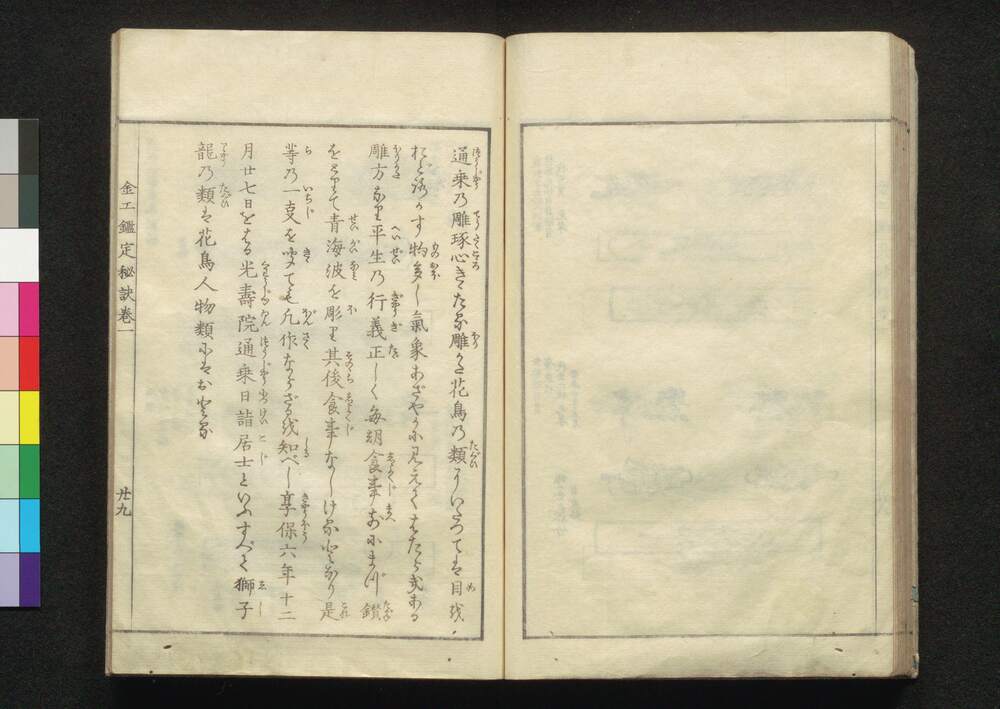 通乗乃雕琢心きたる雕かた花鳥乃類にいたつても目を
おどろかす物多し氣象あざやかに見えてはたらきある
雕方なり平生乃行義正しく毎朝食事前にまづ鑚
をとりて青海波を彫り其後食事なしけるとなり是
等乃一支を聞ても凡作ならざるを知べし享保六年十二
月廿七日をはる光壽院通乗日詣居士といふすべて獅子
龍乃類も花鳥人物類にもおとる
金工鑑定秘訣巻一
廿九